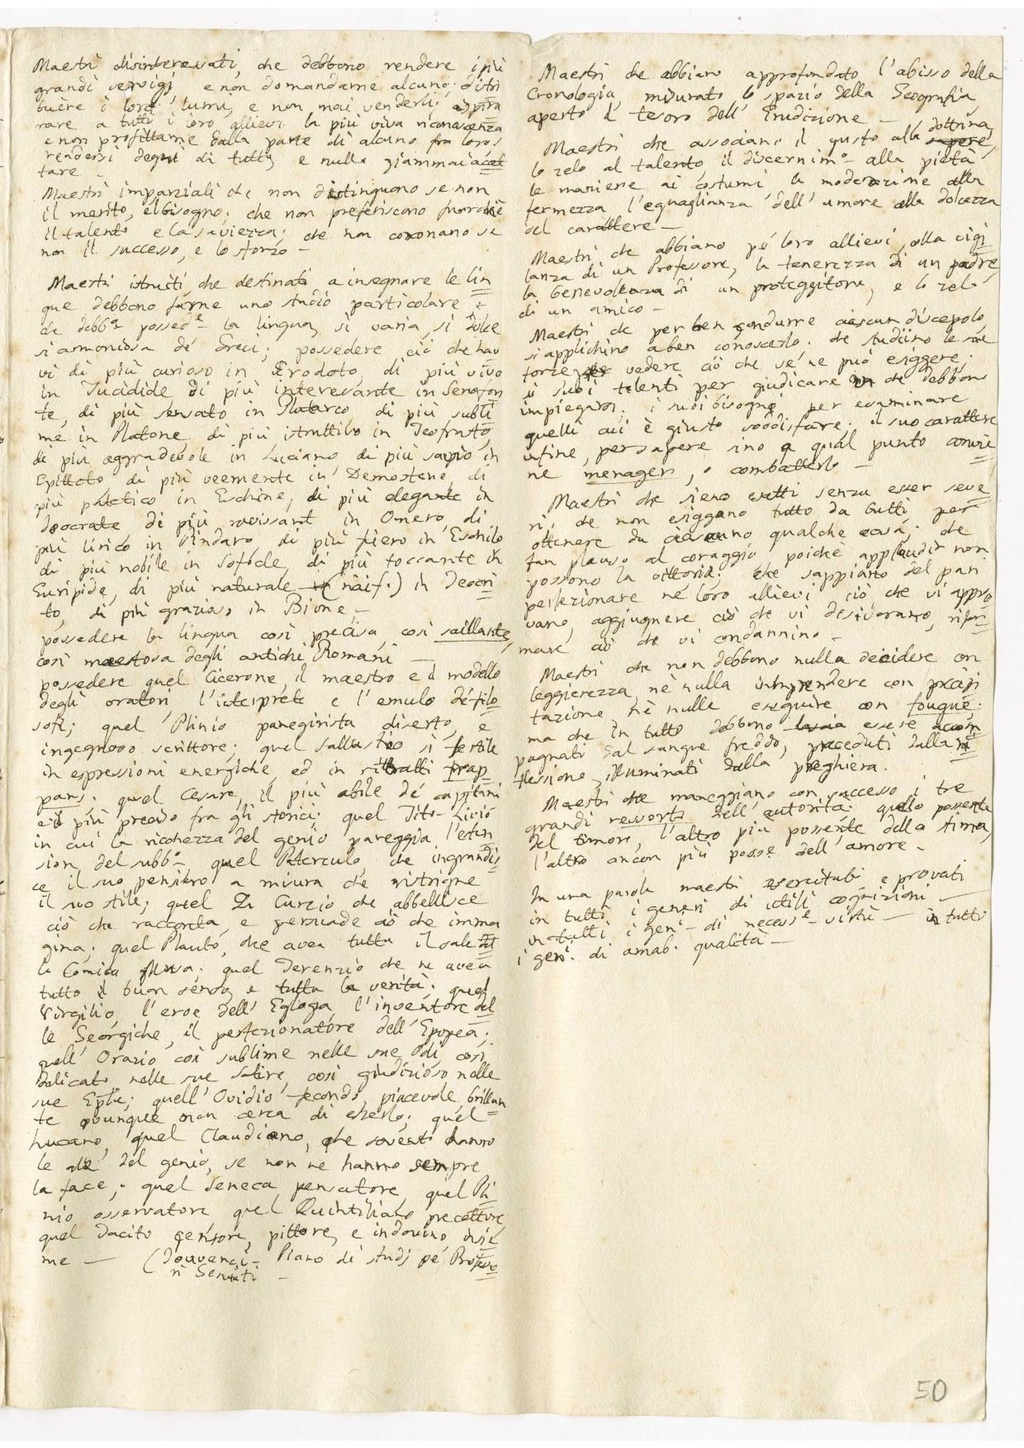 Maestri disinteressati, che debbono rendere i più
grandi servigj, e non domandarne alcuno: distri
buire i loro lumi, e non mai venderli:
rare a tutti i loro allievi la più viva riconoscenza
e non profittarne dalla parte di alcuno fra loro:
rendersi degni di tutto, e nulla giammai accet
tare —
Maestri imparziali che non distinguono se non
il merito, e'l bisogno: che non preferiscono fuorchè
il talento e la saviezza: che non coronano se
non il successo, e lo sforzo —
Maestri istruiti, che destinati a insegnare le lin
gue debbono farne uno studio particolare:
che debbᵒ possedᵉ la lingua sì varia, sì dolce
sì armoniosa de' Greci; possedere ciò che hav
vi di più curioso in Erodoto, di più vivo
in Tucidide, di più interessante in Senofon
te, di più sensato in Plutarco, di più subli
me in Platone, di più istruttivo in Teofrasto,
di più aggradevole in Luciano di più sapio in
Epitteto di più veemente in Demostene, di
più patetico in Eschine, di più elegante in
Isocrate di più ravissant in Omero, di
più lirico in Pindaro di più fiero in Eschilo
di più nobile in Sofocle, di più toccante in
Euripide, di più naturale (naïf.) in Teocri
to, di più grazioso in Bione —
possedere la lingua così precisa, così saillante,
così maestosa degli antichi Romani —
possedere quel Cicerone, il maestro e'l modello
degli oratori, l'interprete e l'emulo de' filo
sofi; quel Plinio panegirista diserto, e
ingegnoso scrittore; quel Sallustio sì fertile
in espressioni energiche, ed in ritratti frap
pans: quel Cesare, il più abile de' capitani
e'l più preciso fra gli storici: quel Tito-Livio
in cui la ricchezza del genio pareggia l'esten
sion del subbᵒ: quel Patercolo che ingrandis
ce il suo pensiero a misura che ristrigne
il suo stile; quel Q. Curzio che abbellisce
ciò che racconta, e persuade ciò che imma
gina; quel Plauto, che avea tutto il sale del
la Comica Musa: quel Terenzio che ne avea
tutto il buon senso e tutta la verità: quel
Virgilio, l'eroe dell'Egloga, l'inventore del
le Georgiche, il perfezionatore dell'Epopea;
quell'Orazio così sublime nelle sue Odi, così
delicato nelle sue Satire, così giudizioso nelle
sue Epistᵉ; quell'Ovidio fecondo, piacevole brillan
te ovunque non cerca di esserlo; quel
Lucano, quel Claudiano, che soventi hanno
le ale del genio, se non ne hanno sempre
la face; quel Seneca pensatore, quel Pli
nio osservatore quel Quintiliano precettore,
quel Tacito censore, pittore, e indovino insie
me — (Jouvenci — Piano di studj pe' Professo
ri Gesuiti —
Maestri che abbiano approfondato l'abisso della
Cronologia, misurato lo spazio della Geografia,
aperto il tesoro dell'Erudizione —
Maestri che associano il gusto alla dottrina,
lo zelo al talento il discernimᵒ alla pietà
le maniere ai costumi la moderazione alla
fermezza l'eguaglianza dell'umore alla dolcezza
del carattere —
Maestri, che abbiano pe' loro allievi, colla vigi
lanza di un Professore, la tenerezza di un padre
la benevolenza di un proteggitore, e lo zelo
di un amico —
Maestri che per ben condurre ciascun discepolo
si applichino a ben conoscerlo: che studiino le sue
forze per vedere ciò che se ne può esiggere:
i suoi talenti per giudicare a che debbono
impiegarsi: i suoi bisogni per esaminare
quelli cui è giusto soddisfare: il suo carattere
infine, per sapere sino a qual punto convie
ne menager, o combatterlo —
Maestri che sieno esatti senza esser seve
ri; che non esiggano tutto da tutti per
ottenere da ciascuno qualche cosa; che
fan plauso al coraggio poichè applaudir non
possono la vittoria; che sappiano del pari
perfezionare ne' loro allievi ciò che vi appro
vano, aggiugnere ciò che vi desiderano, rifor
mare ciò che vi condannino —
Maestri che non debbono nulla decidere con
leggierezza, nè nulla intraprendere con precipi
tazione nè nulla eseguire con fougue:
ma che in tutto debbono essere accom
pagnati dal sangue freddo, preceduti dalla ri
flessione, illuminati dalla preghiera.
Maestri che maneggiano con successo i tre
grandi ressorts dell'autorità: quello possente
del timore, l'altro più possente della stima,
l'altro ancor più possᵉ dell'amore —
In una parola maestri esercitati e provati
in tutti i generi di utili cognizioni —
in tutti i genⁱ di necessᵉ virtù — in tutti
i genⁱ di amabⁱ qualità —
50